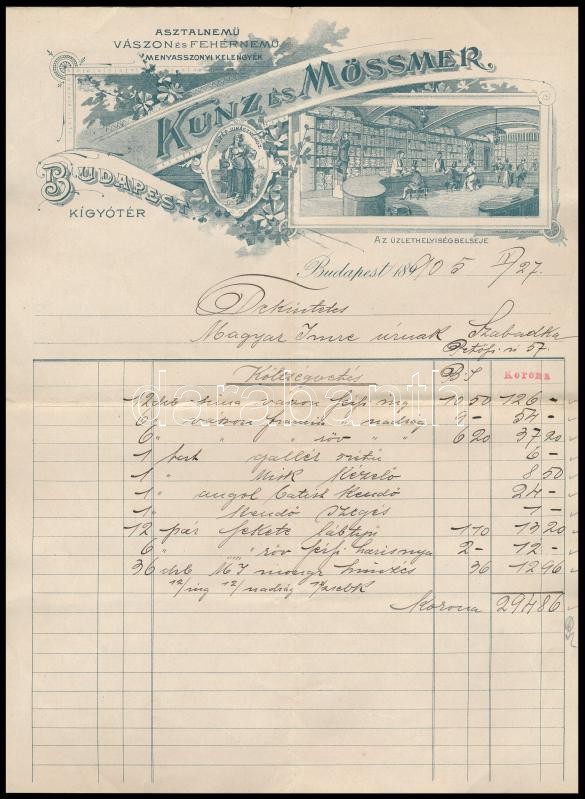 ASZTALNEMŰ
VÁSZON ÉS FEHÉRNEMŰ
MENYASSZONYI KELENGYÉK
KUNZ ÉS MÖSSMER.
BUDAPEST.
KÍGYÓTÉR
AZ ÜZLETHELYISÉG BELSEJE
Budapest 1905 27.
Tekintetes
Magyar Imre úrnak Szabadka
Petőfi u 57.
Költségvetés Korona
12 drb vászon férfi ing 10 50 126 –
6 " vászon nadrág 9 – 54 –
6 " " " röv " " 6 20 37 20
1 gallér 6 –
1 " Kézelő 8 50
1 " angol batist Kendő 24 –
1 " Kendő Szegés 1 –
12 pár fekete 1 10 13 20
6 " " röv férfi harisnya 2 – 12 –
36 drb M I hímzés 36 12 96
12/ing 12/nadrág 12/zsebk
Korona 294 86
darabanth